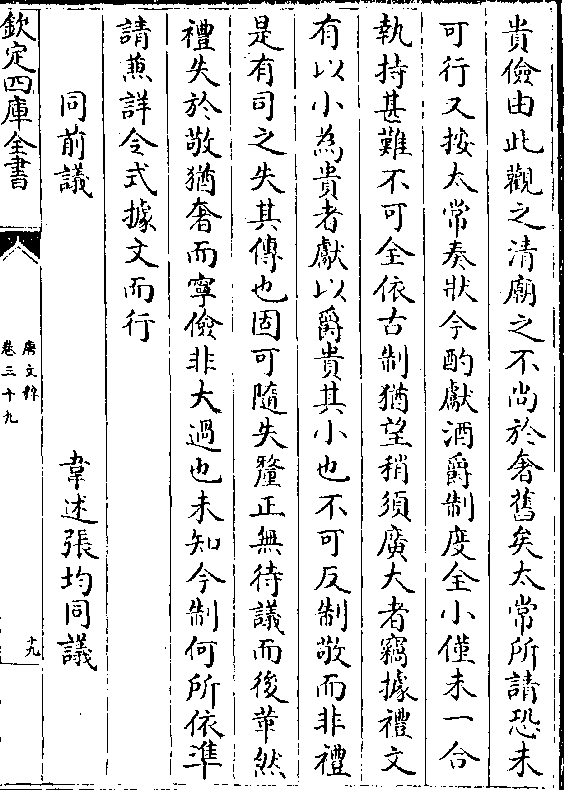 貴儉由此觀之清廟之不尚於奢舊矣太常所請恐未
可行又按太常奏狀今酌獻酒爵制度全小僅未一合
執持甚難不可全依古制猶望稍須廣大者竊據禮文
有以小為貴者獻以爵貴其小也不可反制敬而非禮
是有司之失其傳也固可隨失釐正無待議而後革然
禮失於敬猶奢而寧儉非大過也未知今制何所依準
請兼詳令式據文而行
同前議 韋述張均同議
欽定四庫全書
唐文粹
卷三十九
十九